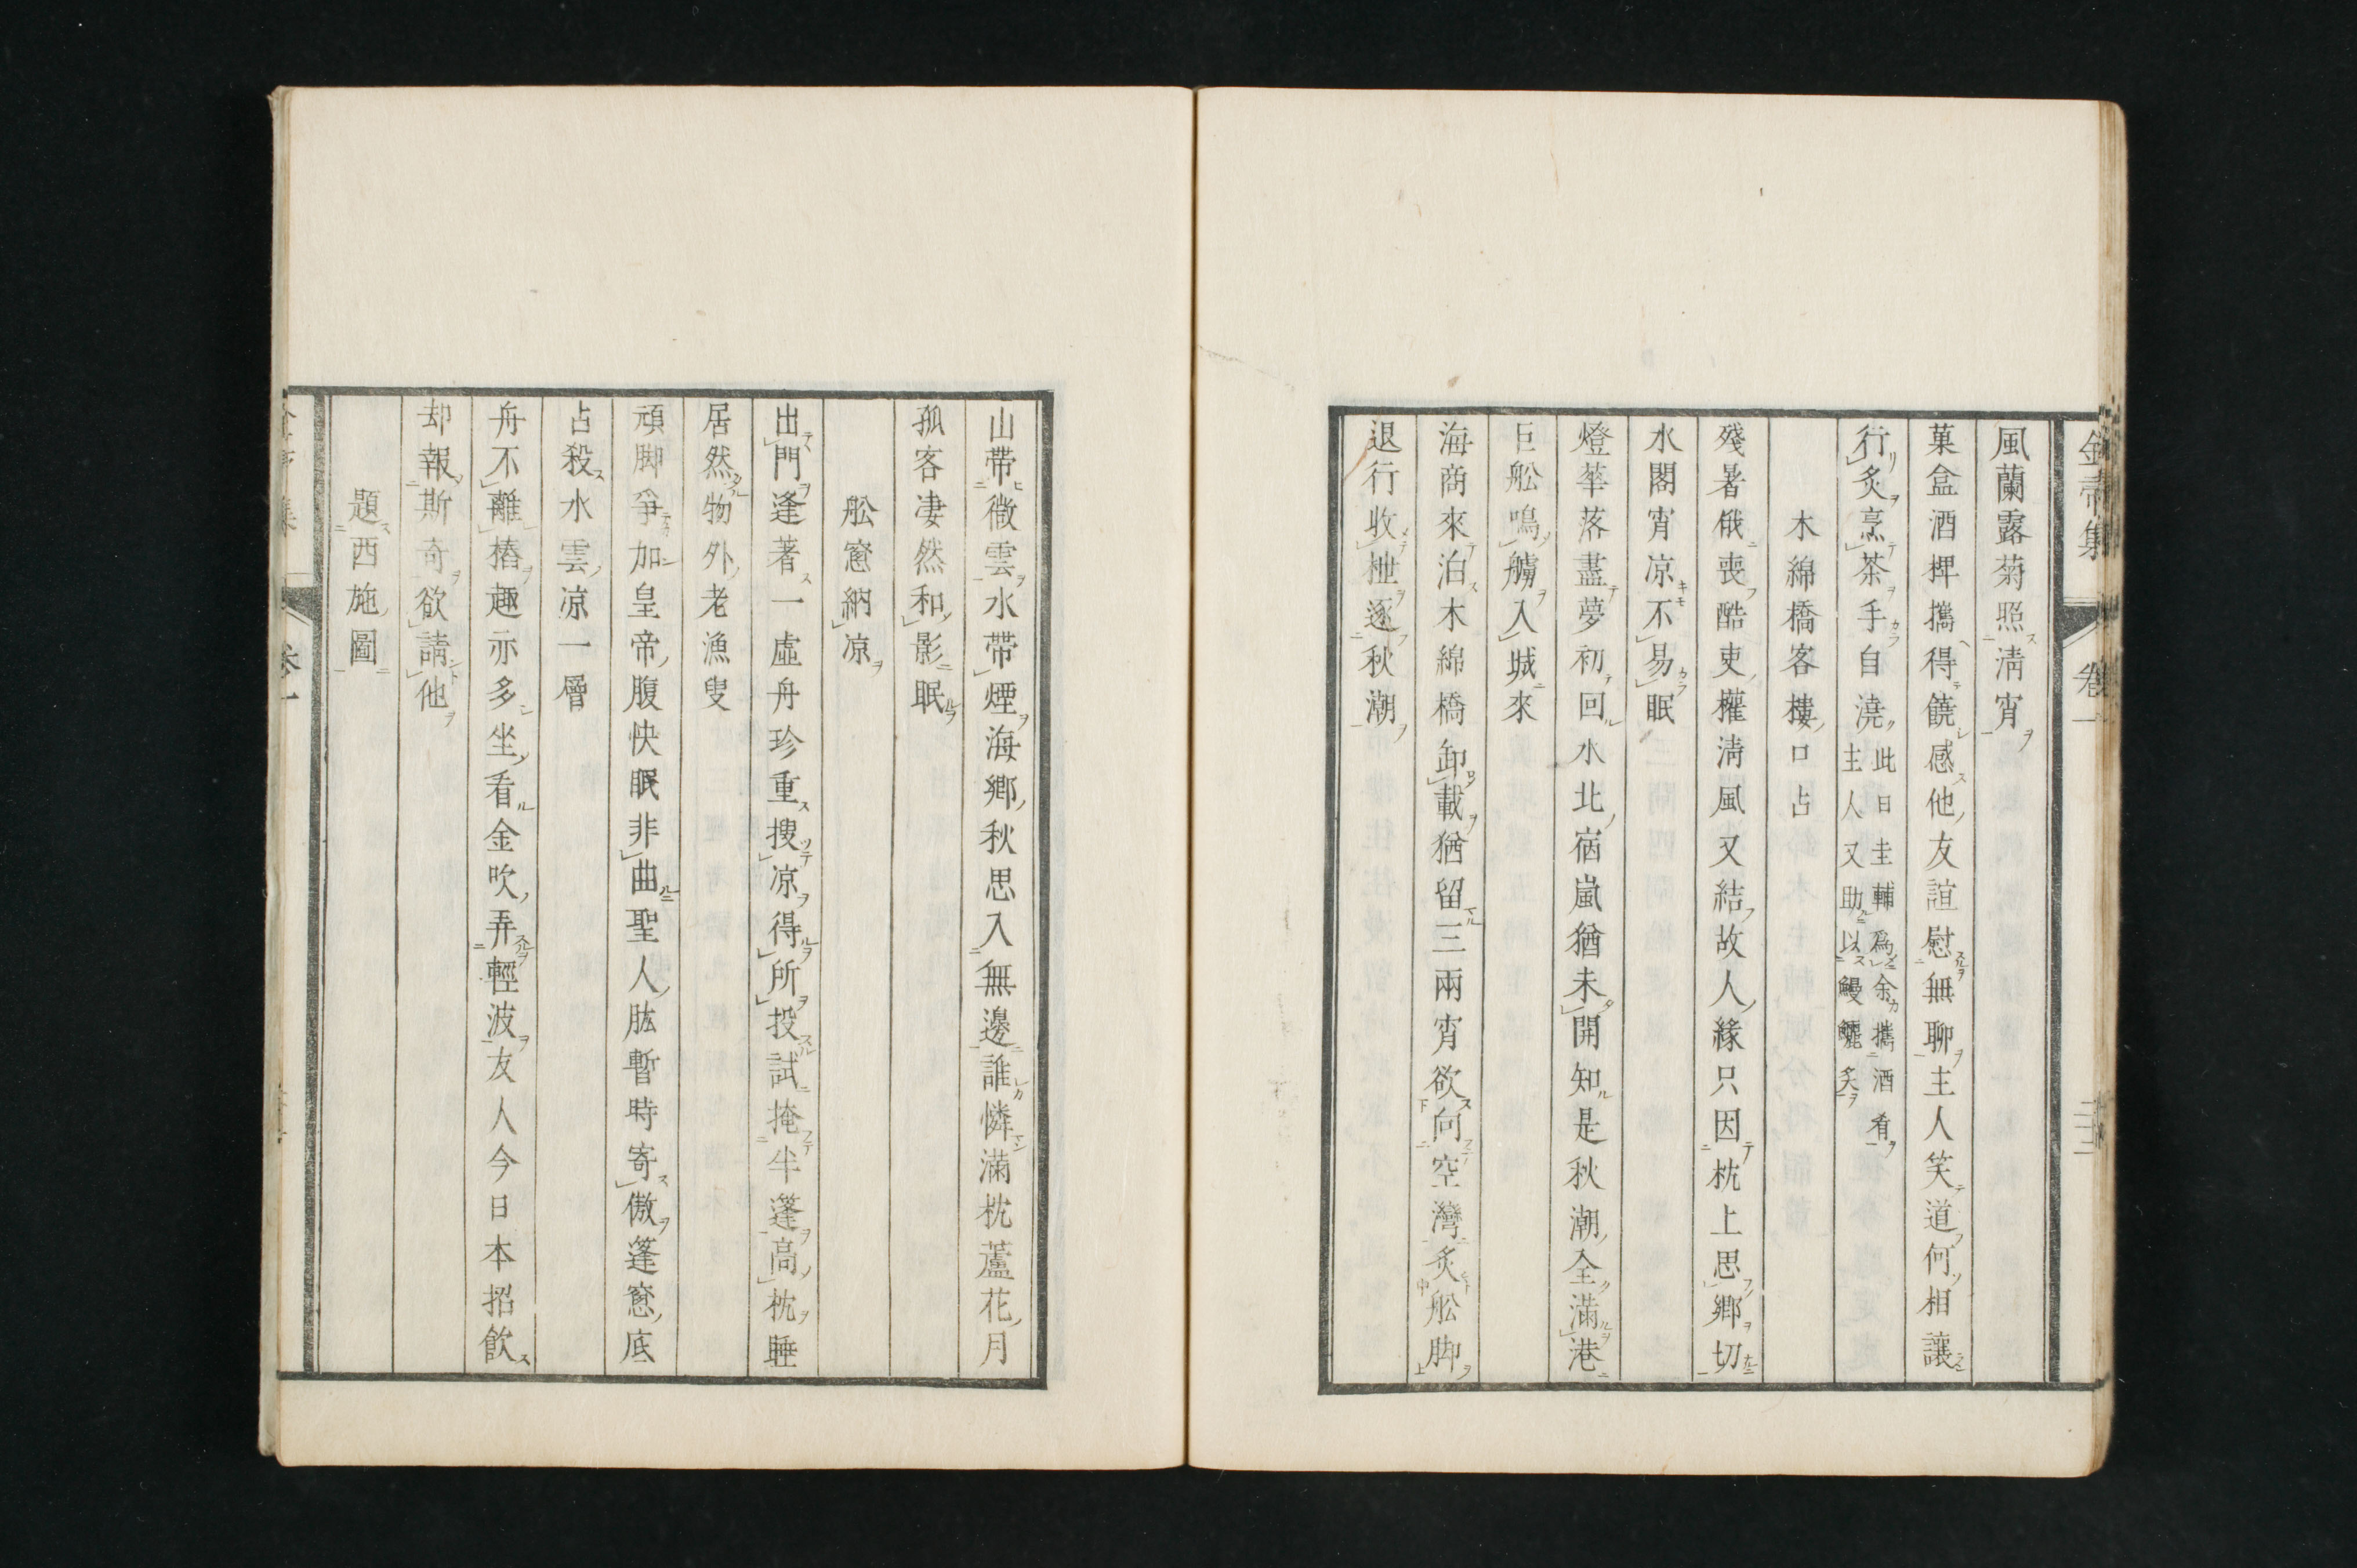 金帚集 卷一
風蘭露菊照淸宵
菓盒酒椑攜得饒感他友誼慰無聊主人笑道何相讓
行炙烹茶手自澆此日圭輔爲余攜酒肴主人又助以鰻鱺炙
木綿橋客樓口占
殘暑俄喪酷吏權淸風又結故人緣只因枕上思鄉切
水閣宵凉不易眠
燈華落盡夢初回水北宿嵐猶未開知是秋潮全滿港
巨舩鳴艣入城來
海商來泊木綿橋卸載猶留三兩宵欲向空灣炙舩脚
退行收枻逐秋潮
山帶微雲水帶煙海鄉秋思入無邊誰憐滿枕蘆花月
孤客凄然和影眠
舩窓納凉
出門逢著一虛舟珍重搜凉得所投試掩半篷高枕睡
居然物外老漁叟
頑脚爭加皇帝腹快眠非曲聖人肱暫時寄傲篷窓底
占殺水雲凉一層
舟不離樁趣亦多坐看金吹弄輕波友人今日本招飮
却報斯奇欲請他
題西施圖
卷一